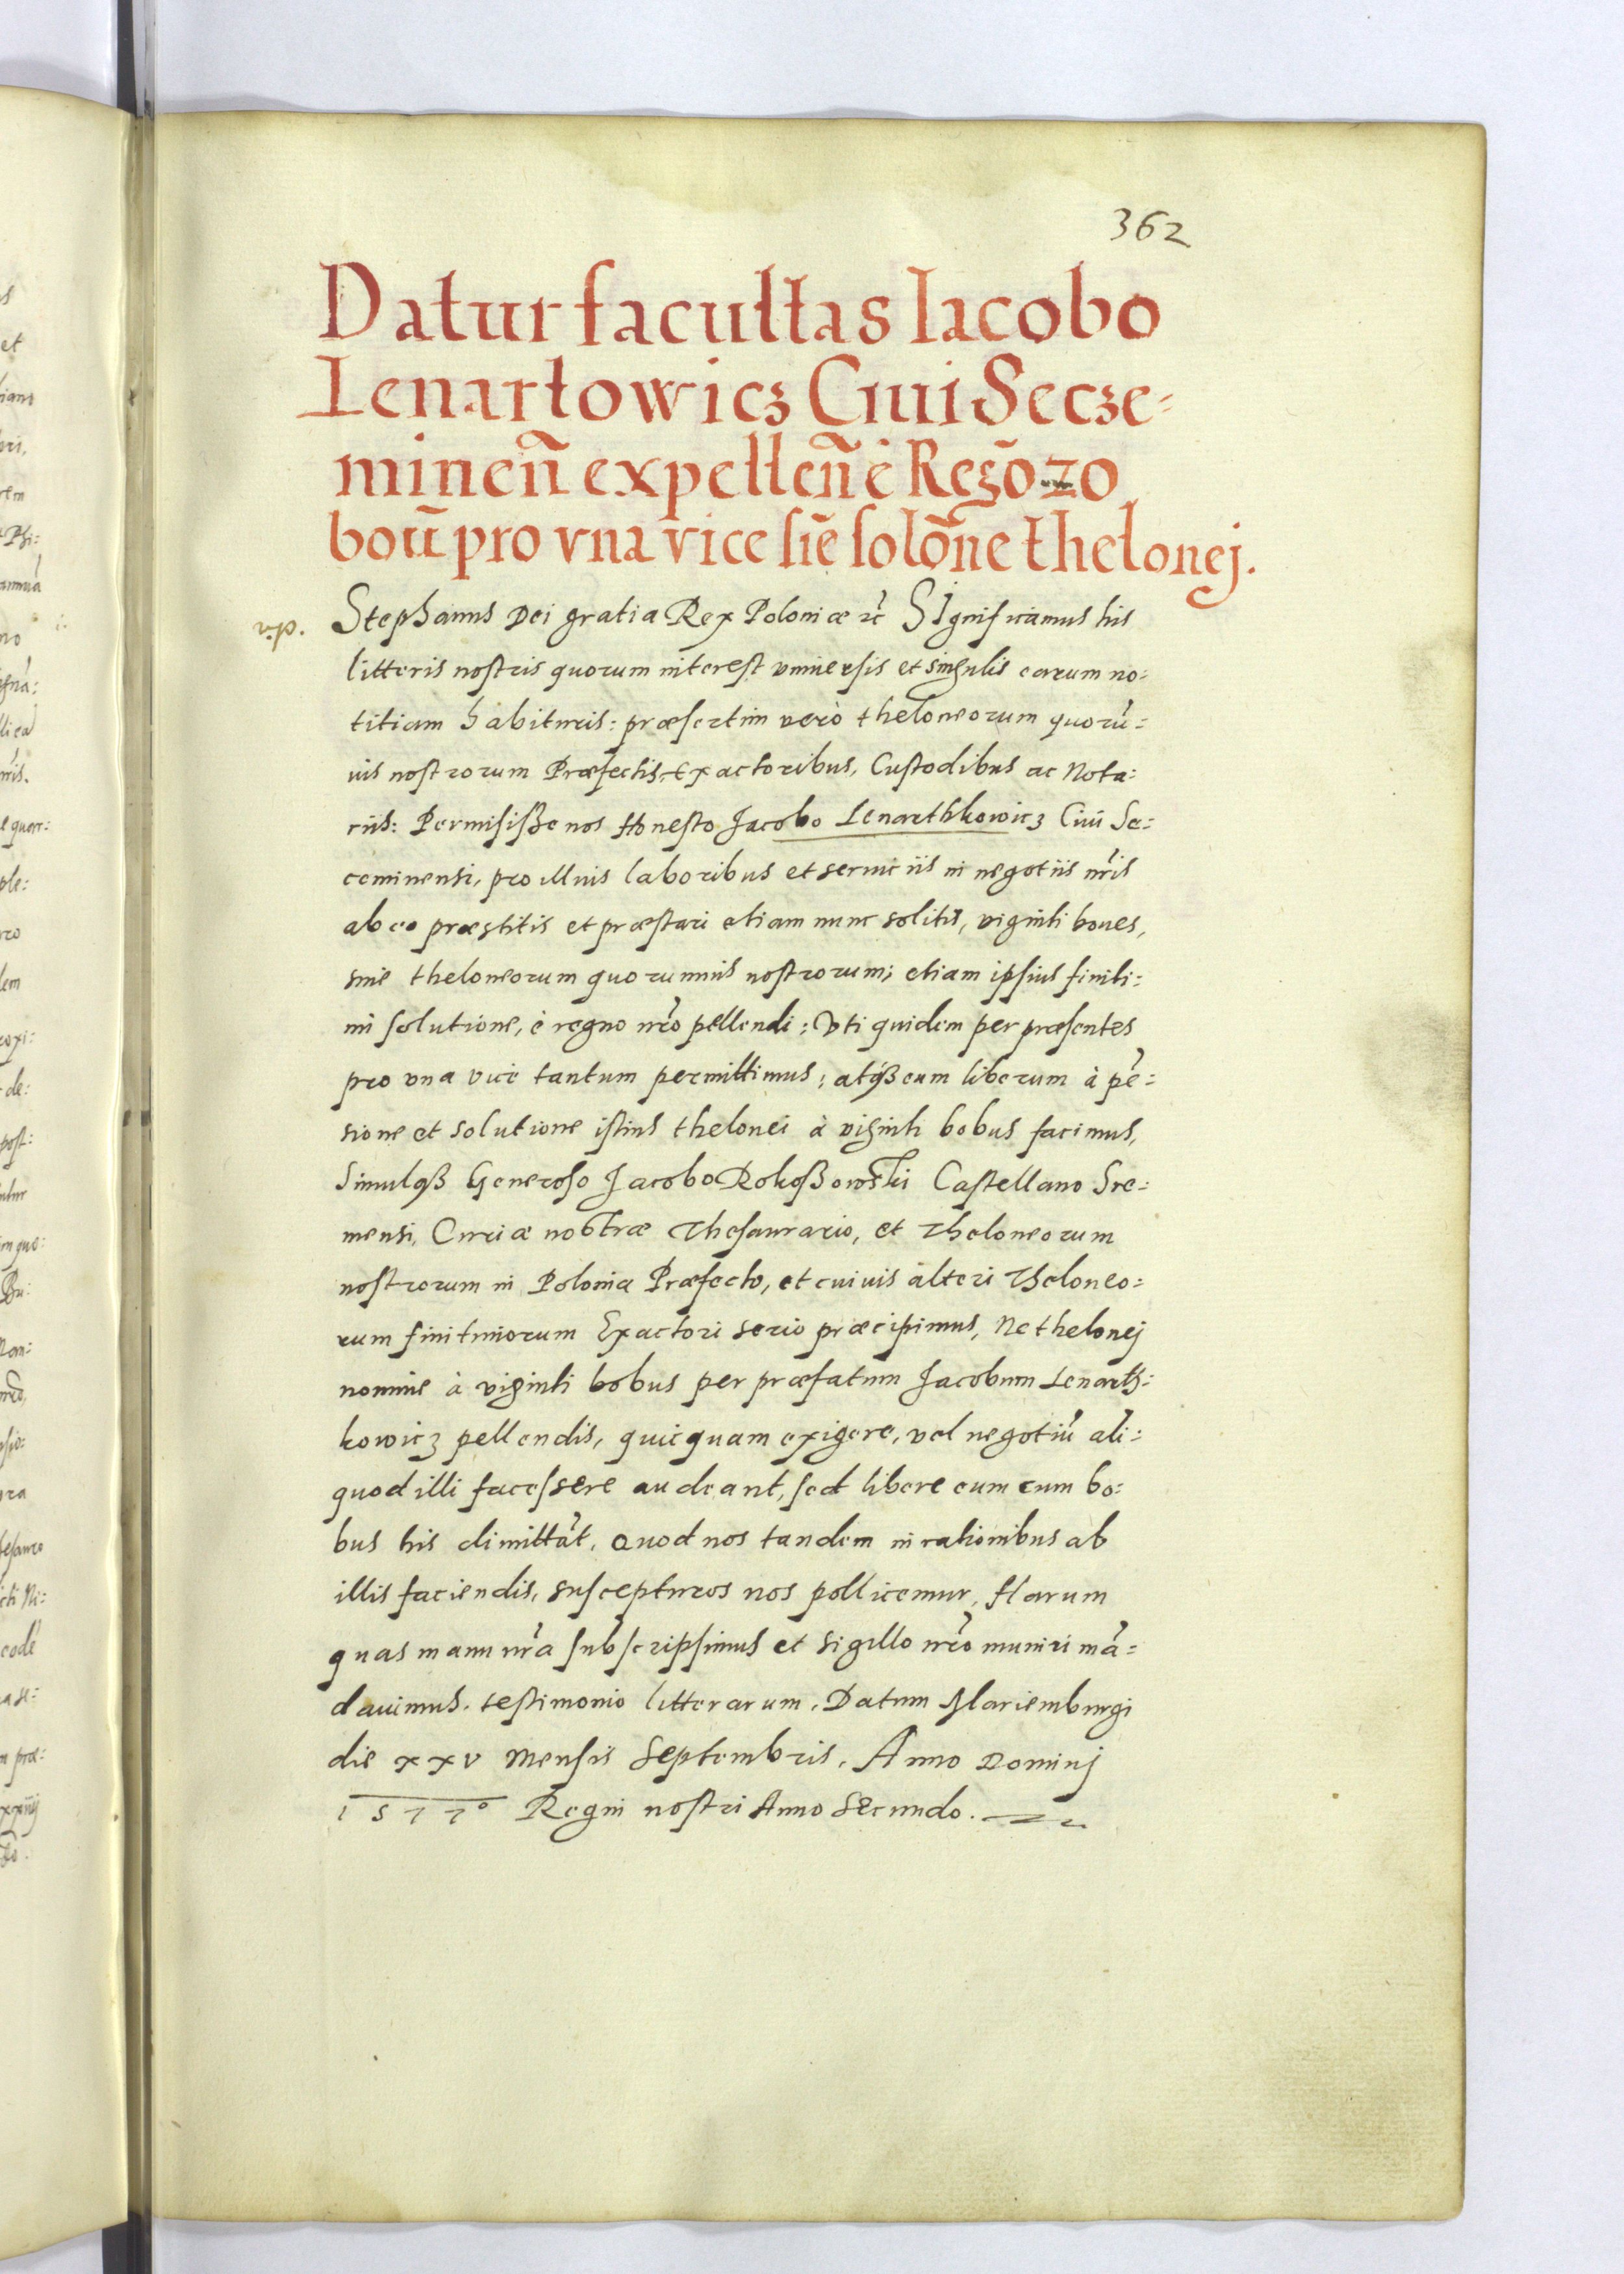 362
Datur facultas Iacobo
Lenartowicz Ciui Secze-
mineñ expelleñ è Regõ 20
boũ pro vna vice siē solõne thelonej.
Stephanus Dei gratia Rex Poloniæ &c Significamus his
litteris nostris quorum interest vniuersis et singulis earum no:
titiam habituris: præsertim verò theloneorum quorũ:
uis nostrorum Præfectis, Exactoribus, Custodibus ac Nota:
riis: Permisiße nos Honesto Jacobo Lenarthkowicz Ciui Se:
ceminensi, pro illius laboribus et seruiciis in negotiis nr̃is
ab eo præstitis et præstari etiam nunc solitis, viginti boues,
sine theloneorum quorumuis nostrorum; etiam ipsius finiti:
mi solutione, è regno nr̃o pellendi: Vti quidem per præsentes
pro vna vice tantum permittimus; atqß eum liberum à pẽ:
sione et solutione istius thelonei à viginti bobus facimus,
Simulqß Generoso Jacobo Rokoßowski Castellano Sre:
mensi, Curiæ nostræ Thesaurario, et Theloneorum
nostrorum in Polonia Præfecto, et cuiuis alteri Theloneo:
rum finitimorum Exactori serio præcipimus, Ne thelonej
nomine à viginti bobus per præfatum Jacobum Lenarth:
kowicz pellendis, quicquam exigere, vel negotiũ ali:
quod illi facessere audeant, sed libere eum cum bo:
bus his dimittãt. Quod nos tandem in rationibus ab
illis faciendis, suscepturos nos pollicemur, Harum
quas manu nr̃a subscripsimus et sigillo nr̃o muniri mã:
dauimus. testimonio litterarum. Datum Mariemburgi
die xxv Mensis Septembris. Anno Dominj
1577° Regni nostri Anno Secundo.